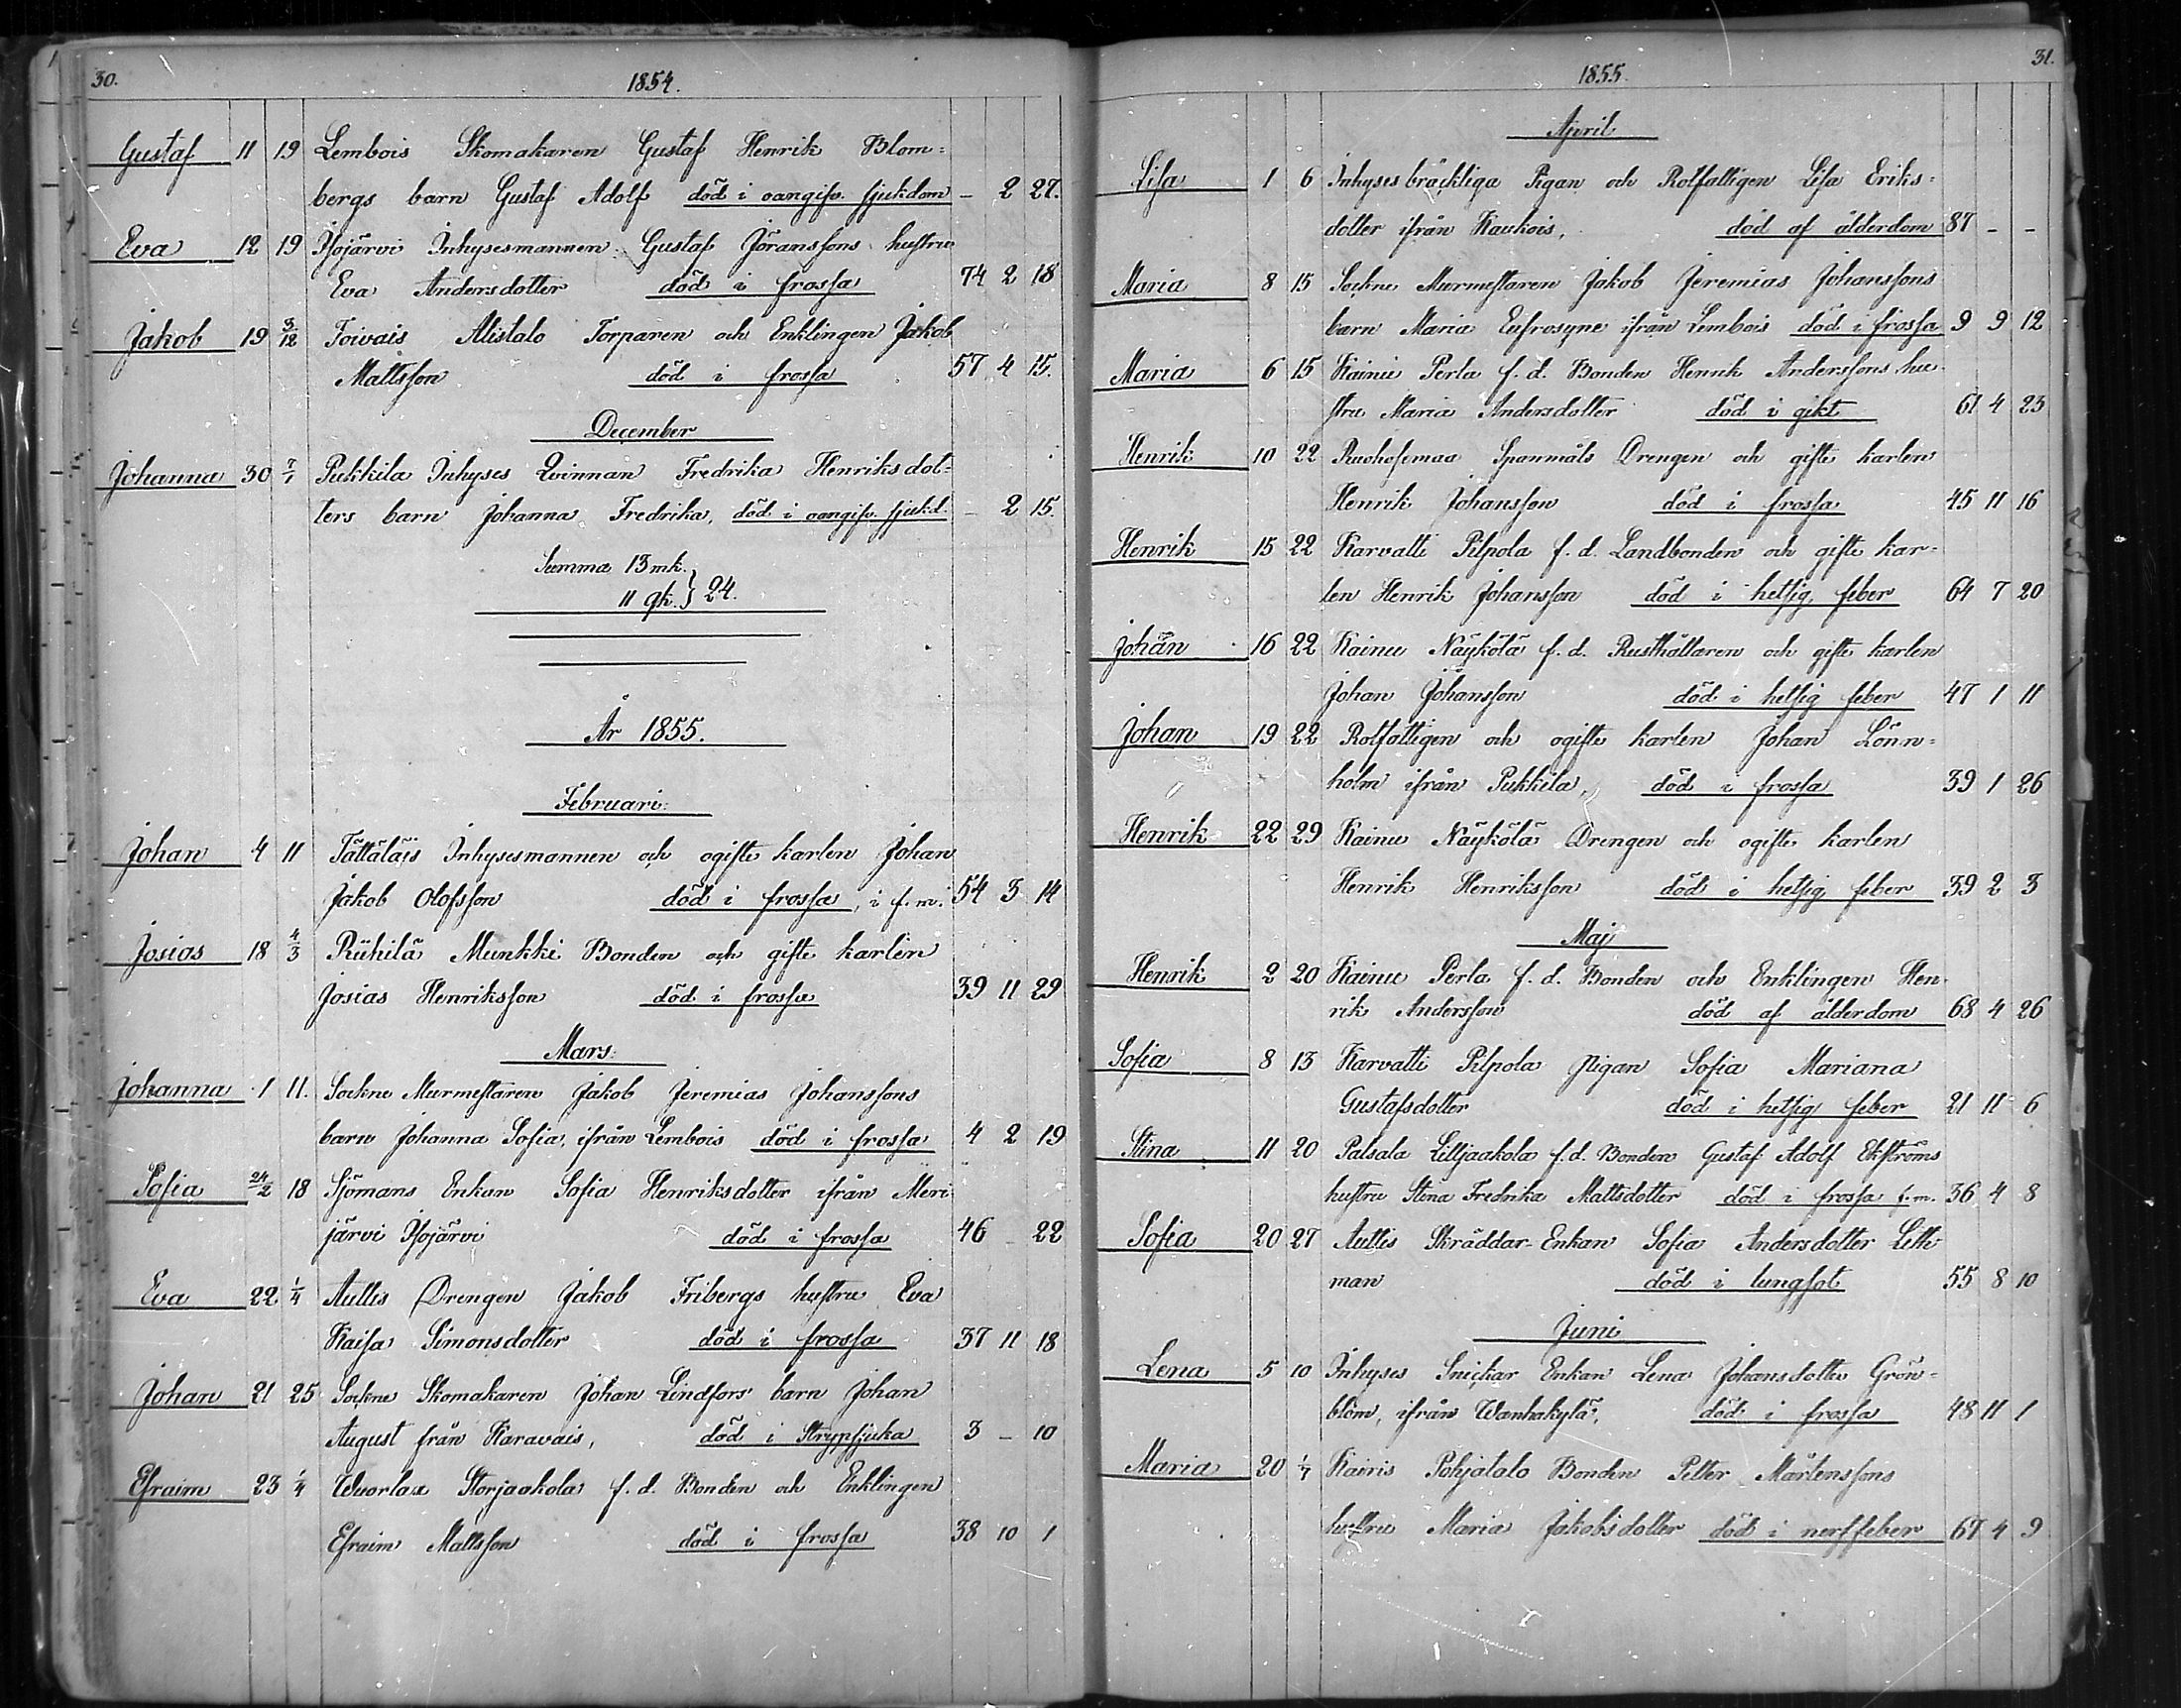 30.
1854.
Gustaf 11 19 Lembois Skomakaren Gustaf Henrik Blom=
bergs barn Gustaf Adolf död i oangifv. sjukdom – 2 27.
Eva 12 19 Isojärvi Inhysesmannen Gustaf Jöranssons hustru
Eva Andersdotter död i frossa 74 2 18
Jakob 19 3/12 Toivais Alistalo Torparen och Enklingen Jakob
Mattsson död i frossa 57 4 15.
December
Johanna 30 7/1 Pukkila Inhyses Qvinnan Fredrika Henriksdot=
ters barn Johanna Fredrika, död i oangifv. sjukd. – 2 15.
Summa 13 mk.
11 qk. } 24.
År 1855.
Februari.
Johan 4 11 Tättäläis Inhysesmannen och ogifte karlen Johan
Jakob Olofsson död i frossa, i f. m. 54 3 14
Josias 18 4/3 Riihilä Munkki Bonden och gifte karlen
Josias Henriksson död i frossa 39 11 29
Mars.
Johanna 1 11. Sockne Murmestaren Jakob Jeremias Johanssons
barn Johanna Sofia, ifrån Lembois död i frossa 4 2 19
Sofia 24/2 18 Sjömans Enkan Sofia Henriksdotter ifrån Meri
järvi Isojärvi död i frossa 46 – 22
Eva 22 1/4 Aultis Drengen Jakob Fribergs hustru Eva
Kaisa Simonsdotter död i frossa 37 11 18
Johan 21 25 Sockne Skomakaren Johan Lindfors' barn Johan
August från Karavais, död i Strypsjuka 3 – 10
Efraim 23 1/4 Wuorlax Storjaakola f. d. Bonden och Enklingen
Efraim Mattsson död i frossa 38 10 1
31.
1855.
April
Lisa 1 6 Inhyses bräckliga Pigan och Rotfattigen Lisa Eriks=
dotter ifrån Kaukois, död af ålderdom 87 – –
Maria 8 15 Sockne Murmestaren Jakob Jeremias Johanssons
barn Maria Eufrosyne ifrån Lembois död i frossa 9 9 12
Maria 6 15 Kainu Perla f. d. Bonden Henrik Anderssons hu
stru Maria Andersdotter död i gikt 61 4 23
Henrik 10 22 Ruohosmaa Spanmåls Drengen och gifte karlen
Henrik Johansson död i frossa 45 11 16
Henrik 15 22 Karvatti Pilpola f. d. Landbonden och gifte kar=
len Henrik Johansson död i hetsig feber 64 7 20
Johan 16 22 Kainu Näykölä f. d. Rusthållaren och gifte karlen
Johan Johansson död i hetsig feber 47 1 11
Johan 19 22 Rotfattigen och ogifte karlen Johan Lönn=
holm ifrån Pukkila, död i frossa 39 1 26
Henrik 22 29 Kainu Näykölä Drengen och ogifte karlen
Henrik Henriksson död i hetsig feber 39 2 3
Maj
Henrik 2 20 Kainu Perla f. d. Bonden och Enklingen Hen
rik Andersson död af ålderdom 68 4 26
Sofia 8 13 Karvatti Pilpola pigan Sofia Mariana
Gustafsdotter död i hetsig feber 21 11 6
Stina 11 20 Palsala Lilljaakola f. d. Bonden Gustaf Adolf Ekströms
hustru Stina Fredrika Mattsdotter död i frossa f. m. 36 4 8
Sofia 20 27 Aultis Skräddar-Enkan Sofia Andersdotter Lith
man död i lungsot 55 8 10
Juni
Lena 5 10 Inhyses Snickar Enkan Lena Johansdotter Grön=
blom, ifrån Wanhakylä, död i frossa 48 11 1
Maria 20 1/7 Kairis Pohjatalo Bonden Petter Mårtenssons
hustru Maria Jakobsdotter död i nerffeber 67 4 9